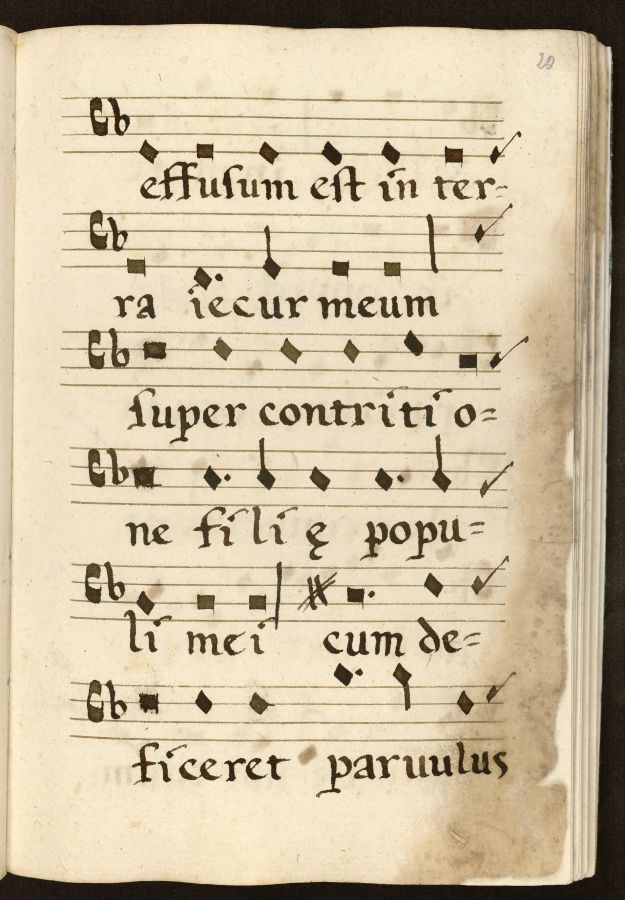 20
effusum est in ter=
ra iecur meum
super contriti o=
ne fili ę popu=
li mei cum de=
ficeret paruulus